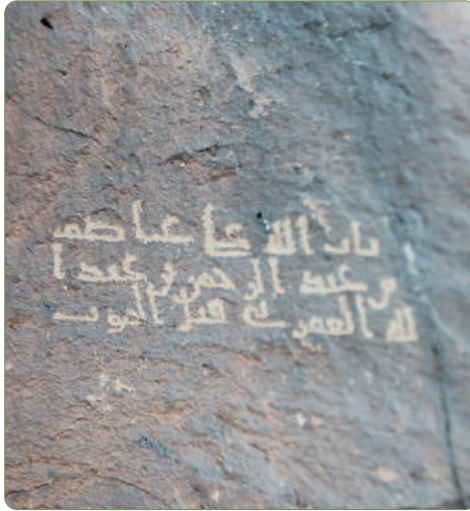 تاب الله على عاصم
و عبد الرحمن و عبد ا
لله العمري قبل الموت